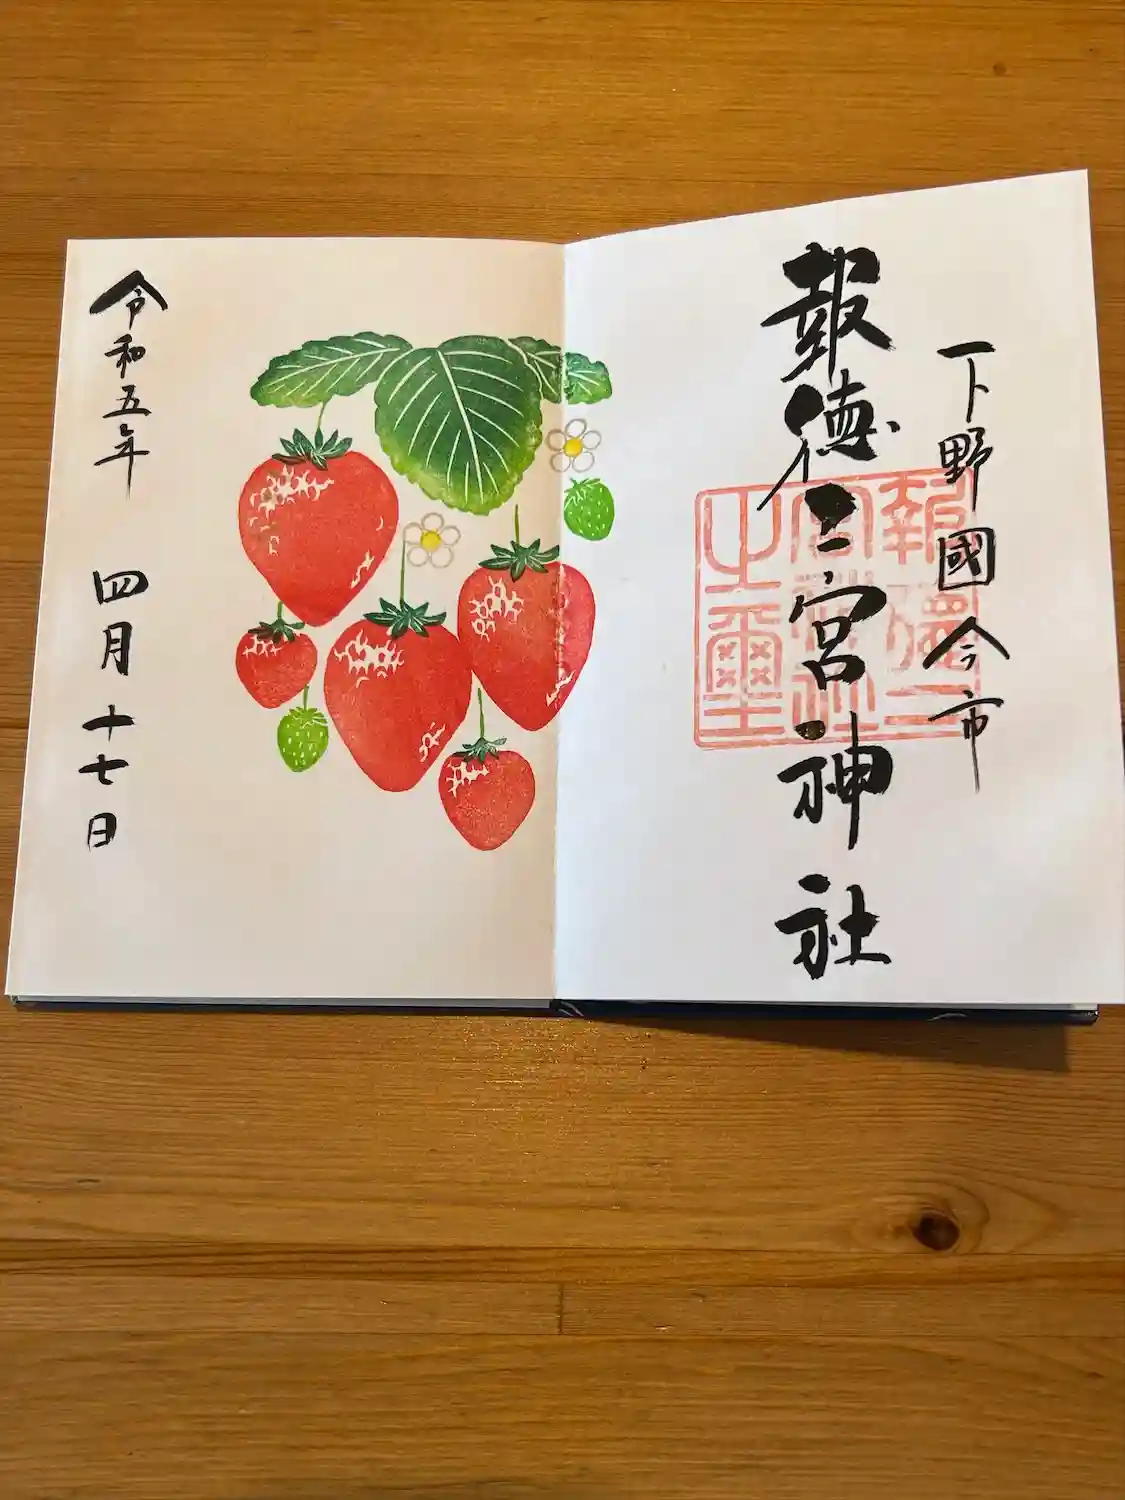 下野國今市
報徳二宮神社
報徳二宮神社之璽
令和五年 四月十七日